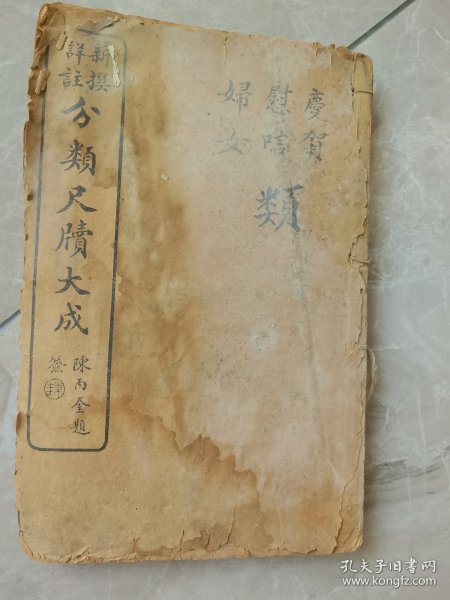 慶賀
慰唁
婦女
類
新撰
詳註
分類尺牘大成
陳丙奎題
簽
孔夫子旧书网
www.kongfz.com